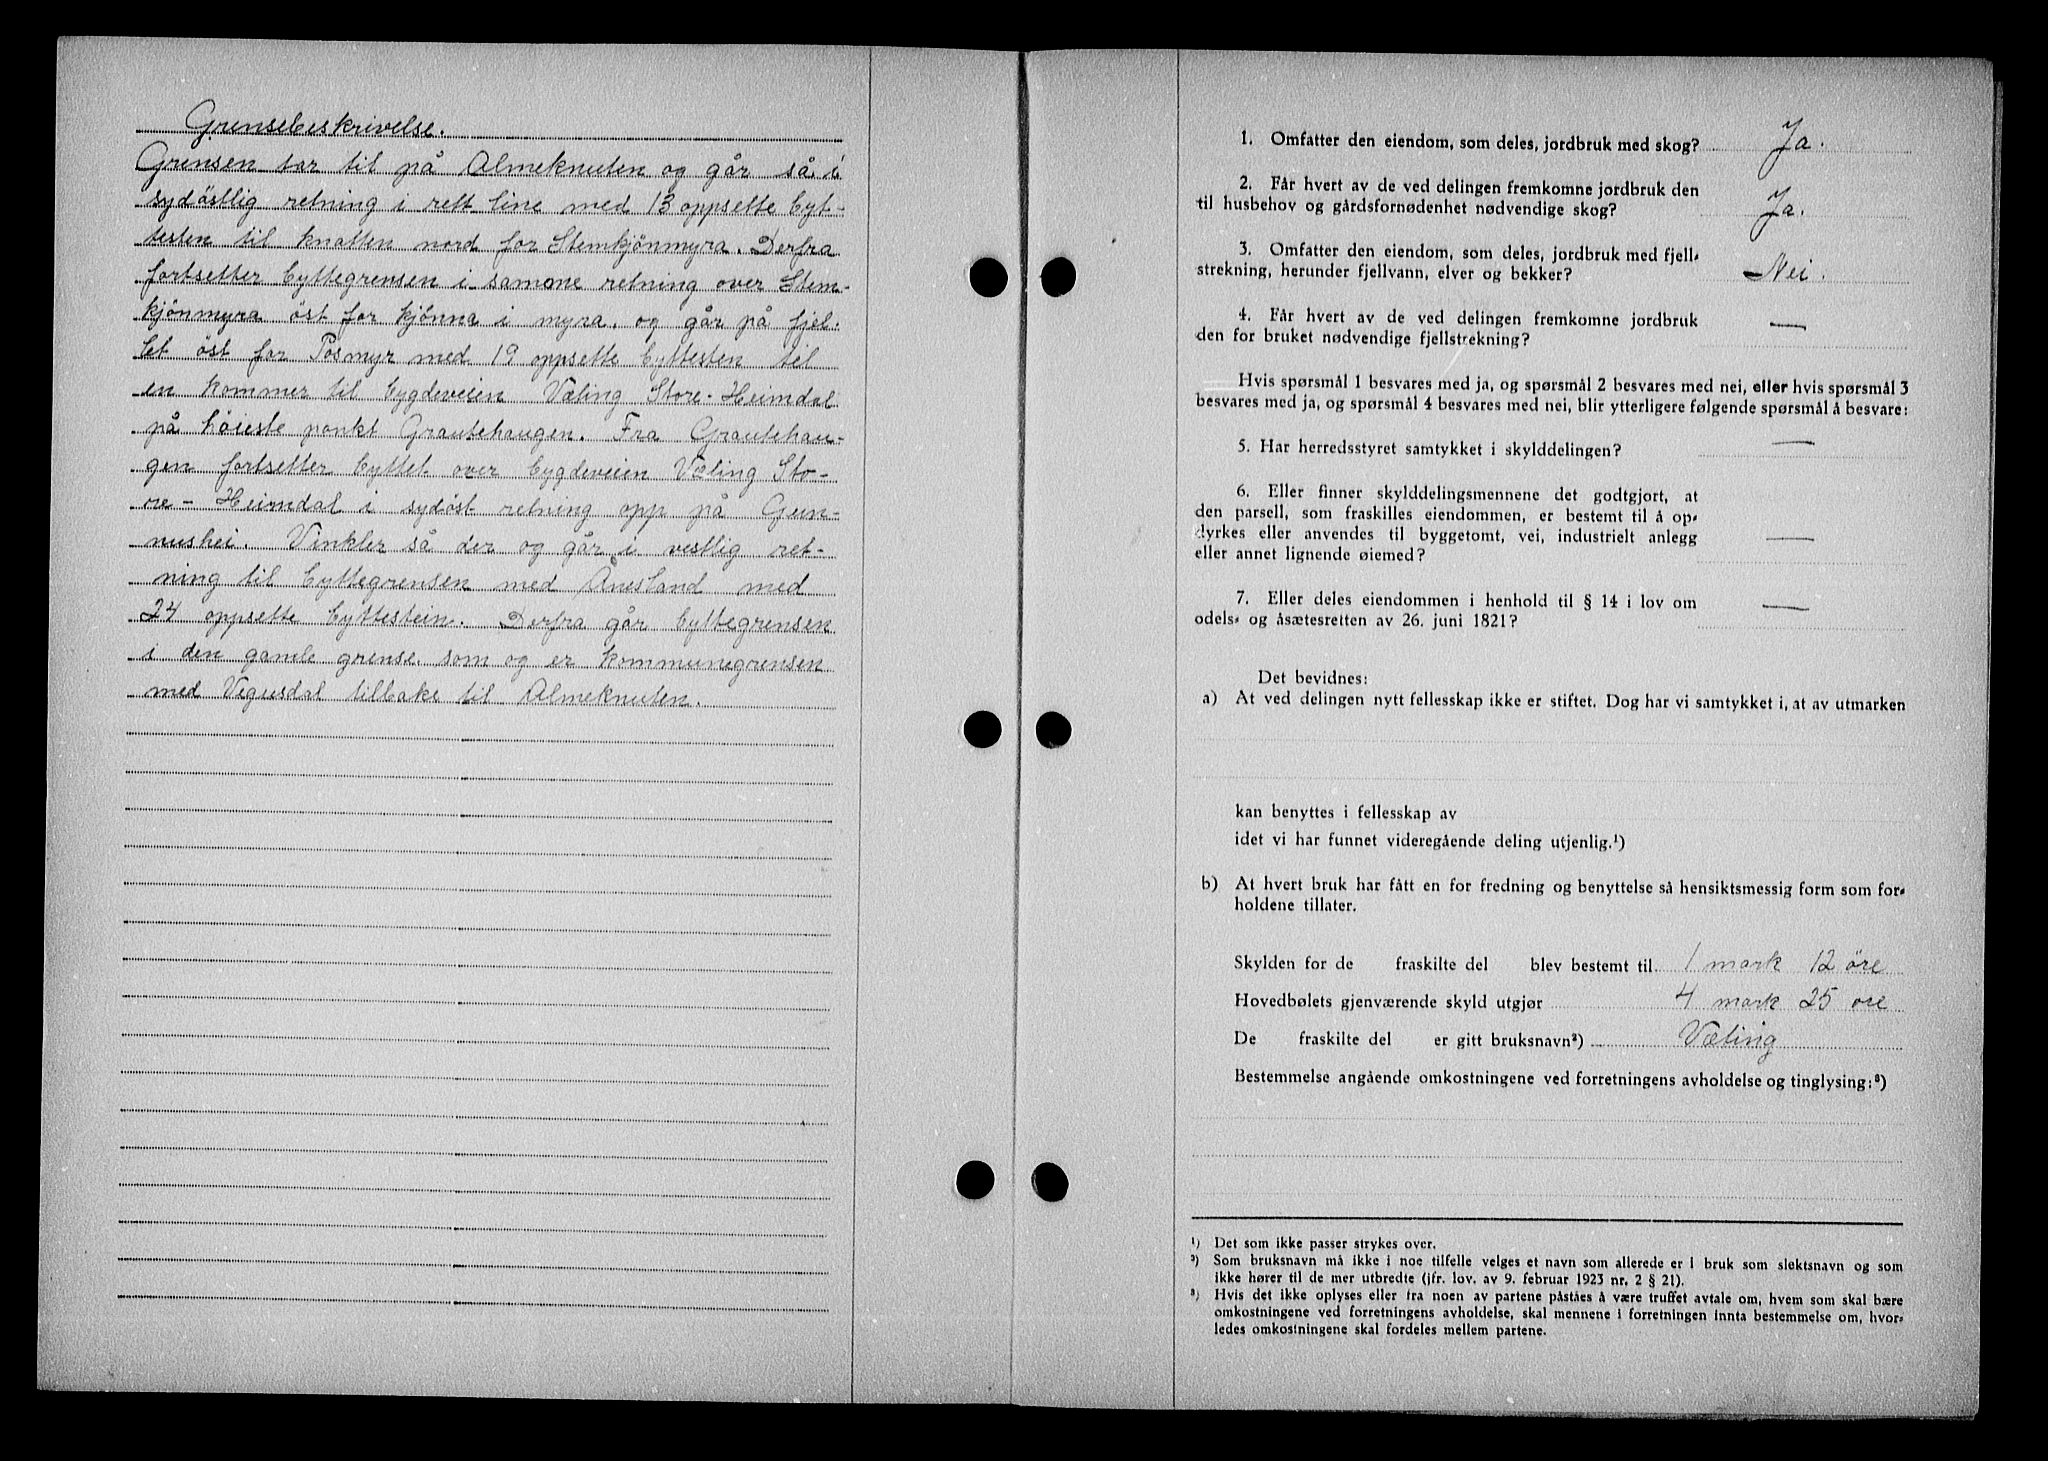 Grensebeskrivelse.
Grensen tar til på Almeknuten og går så i
sydöstlig retning i rett line med 13 oppsette byt-
testen til knatten nord for Stemkjönmyra. Derfra
fortsetter byttegrensen i samone retning over Stem-
kjönmyra öst for kjönna i myra, og går på fjel-
let öst for Posmyr med 19 oppsette byttesten til
en kommer til bygdeveien Væting Store-Heimdal
på höieste ponkt Grautehaugen. Fra Grautehau-
gen fortsetter byttet over bygdeveien Væting Sto-
re-Heimdal i sydöst retning opp på Gun-
nushei. Vinkler så der og går i vestlig ret-
ning til byttegrensen med Ånesland med
24 oppsette byttestein. Derfra går byttegrensen
i den gamle grense som og er kommunegrensen
med Vegusdal tilbake til Almeknuten.
1. Omfatter den eiendom, som deles, jordbruk med skog? Ja.
2. Får hvert av de ved delingen fremkomne jordbruk den
til husbehov og gårdsfornødenhet nødvendige skog? Ja.
3. Omfatter den eiendom, som deles, jordbruk med fjell-
strekning, herunder fjellvann, elver og bekker? Nei.
4. Får hvert av de ved delingen fremkomne jordbruk
den for bruket nødvendige fjellstrekning? —
Hvis spørsmål 1 besvares med ja, og spørsmål 2 besvares med nei, eller hvis spørsmål 3
besvares med ja, og spørsmål 4 besvares med nei, blir ytterligere følgende spørsmål å besvare:
5. Har herredsstyret samtykket i skylddelingen? —
6. Eller finner skylddelingsmennene det godtgjort, at
den parsell, som fraskilles eiendommen, er bestemt til å op-
dyrkes eller anvendes til byggetomt, vei, industrielt anlegg
eller annet lignende øiemed? —
7. Eller deles eiendommen i henhold til § 14 i lov om
odels- og åsætesretten av 26. juni 1821? —
Det bevidnes:
a) At ved delingen nytt fellesskap ikke er stiftet. Dog har vi samtykket i, at av utmarken
kan benyttes i fellesskap av
idet vi har funnet videregående deling utjenlig.¹)
b) At hvert bruk har fått en for fredning og benyttelse så hensiktsmessig form som for-
holdene tillater.
Skylden for de fraskilte del blev bestemt til 1 mark 12 öre
Hovedbølets gjenværende skyld utgjør 4 mark 25 öre
De fraskilte del er gitt bruksnavn²) Væting
Bestemmelse angående omkostningene ved forretningens avholdelse og tinglysing:³)
¹) Det som ikke passer strykes over.
²) Som bruksnavn må ikke i noe tilfelle velges et navn som allerede er i bruk som slektsnavn og som
ikke hører til de mer utbredte (jfr. lov. av 9. februar 1923 nr. 2 § 21).
³) Hvis det ikke oplyses eller fra noen av partene påståes å være truffet avtale om, hvem som skal bære
omkostningene ved forretningens avholdelse, skal mennene i forretningen innta bestemmelse om, hvor-
ledes omkostningene skal fordeles mellem partene.